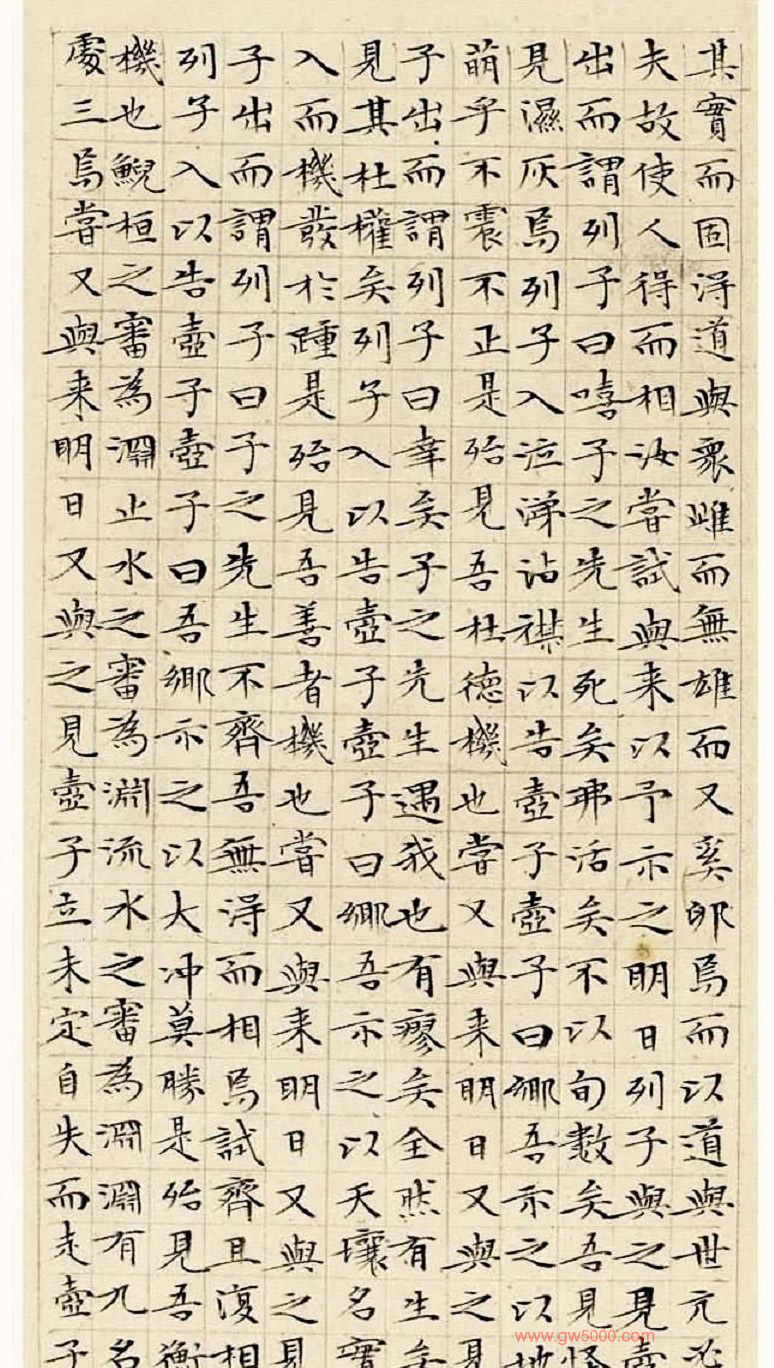 其實而固得道與眾雌而無雄而又奚卵焉而以道與世亢必
夫故使人得而相汝嘗試與来以予示之明日列子與之見壺
出而謂列子曰嘻子之先生死矣弗活矣不以旬數矣吾見怪
見濕灰焉列子入泣涕沾襟以告壺子壺子曰鄉吾示之以地
萌乎不震不正是殆見吾杜德機也嘗又與来明日又與之見
子出而謂列子曰幸矣子之先生遇我也有瘳矣全然有生矣
見其杜權矣列子入以告壺子壺子曰鄉吾示之以天壤名實
入而機發於踵是殆見吾善者機也嘗又與来明日又與之見
子出而謂列子曰子之先生不齊吾無得而相焉試齊且復相
列子入以告壺子壺子曰吾鄉示之以大冲莫勝是殆見吾衡
機也鯢桓之審為淵止水之審為淵流水之審為淵淵有九名
處三焉嘗又與来明日又與之見壺子立未定自失而走壺子
www.gw5000.com